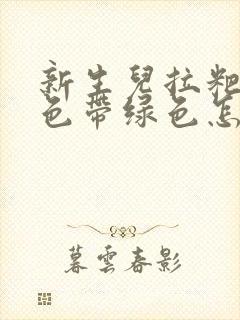 新生兒拉粑
色帶绿色怎
暮雲春影